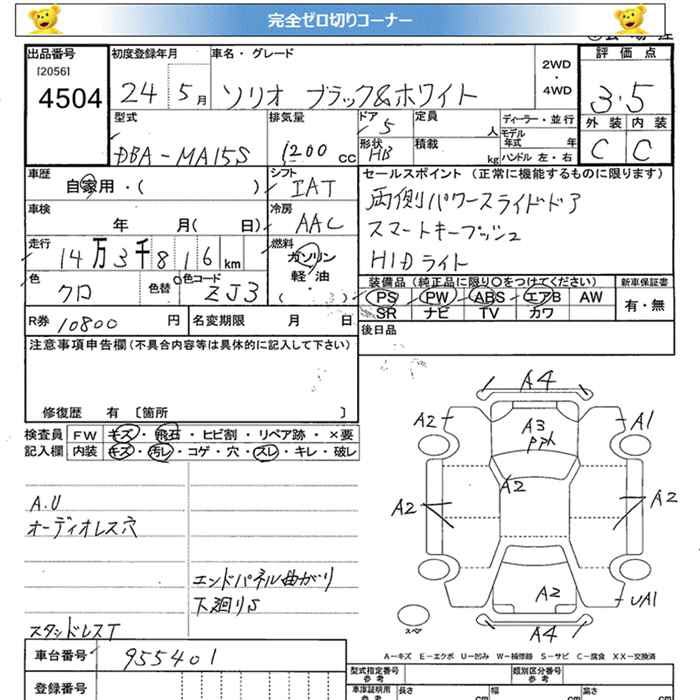 完全ゼロ切りコーナー
出品番号
[2056]
4504
初度登録年月
24 5月
車名・グレード
ソリオ ブラック&ホワイト
2WD
・
4WD
評価点
3.5
外装 内装
C C
型式
DBA-MA15S
排気量
1200 cc
ドア 5
形状 HB
定員 人
積載 kg
ディーラー・並行
モデル年式 年
ハンドル 左・右
車歴
自家用・( )
シフト
IAT
車検
年 月( 日)
冷房
AAC
走行
14万3千816km
燃料
ガソリン
軽・油
( )
色
クロ
色替
色コード
ZJ3
セールスポイント(正常に機能するものに限ります)
両側パワースライドドア
スマートキープッシュ
HIDライト
装備品(純正品に限り○をつけてください)
PS PW ABS エアB AW
SR ナビ TV カワ
新車保証書
有・無
R券 10800 円
名変期限 月 日
後日品
注意事項申告欄(不具合内容等は具体的に記入して下さい)
修復歴 有 [箇所 ]
検査員
記入欄
FW キズ・飛石・ヒビ割・リペア跡・×要
内装 キズ・汚レ・コゲ・穴・スレ・キレ・破レ
A.U
オーディオレス穴
エンドパネル曲がり
下廻りS
スタッドレスT
A4
A2
A3
PPh
A1
A2
A2
A2
A2
UA1
A4
スペア
A-キズ E-エクボ U-凹み W-補修跡 S-サビ C-腐食 XX-交換済
車台番号
955401
登録番号
型式指定番号
参考
類別区分番号
参考
車庫証明用
参考
長さ cm
幅 cm
高さ cm